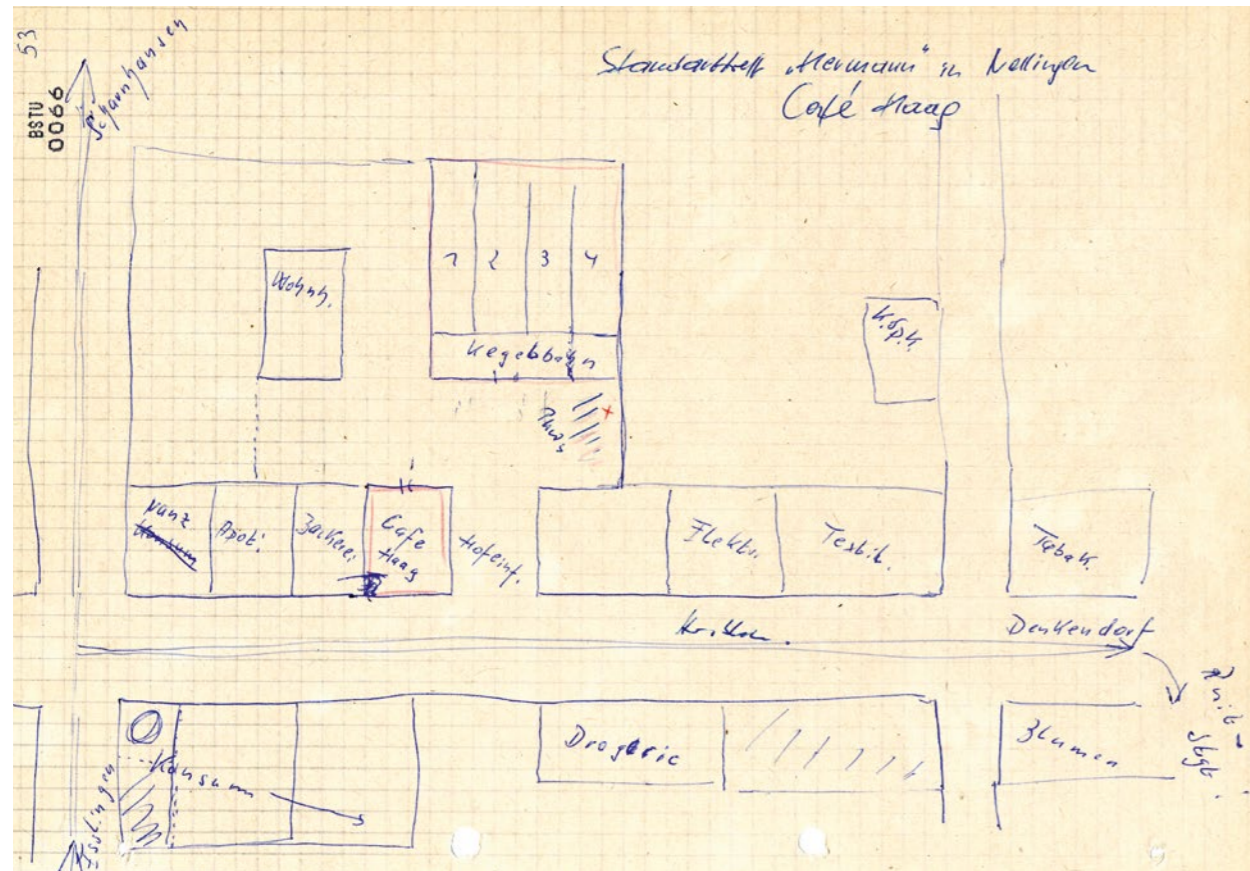 53
BSTU
0066
Scharnhausen
Standorttreff „Hermann“ in Nellingen
Café Haag
Wohnh.
1 2 3 4
Kegelbahn
K.Sp.K.
Nanz
Konsum
Apot.
Bäckerei
Cafe
Haag
Hofeinf.
Elektr.
Textil.
Tabak.
Denkendorf
Esslingen
Konsum
Drogerie
Blumen
Stgt.